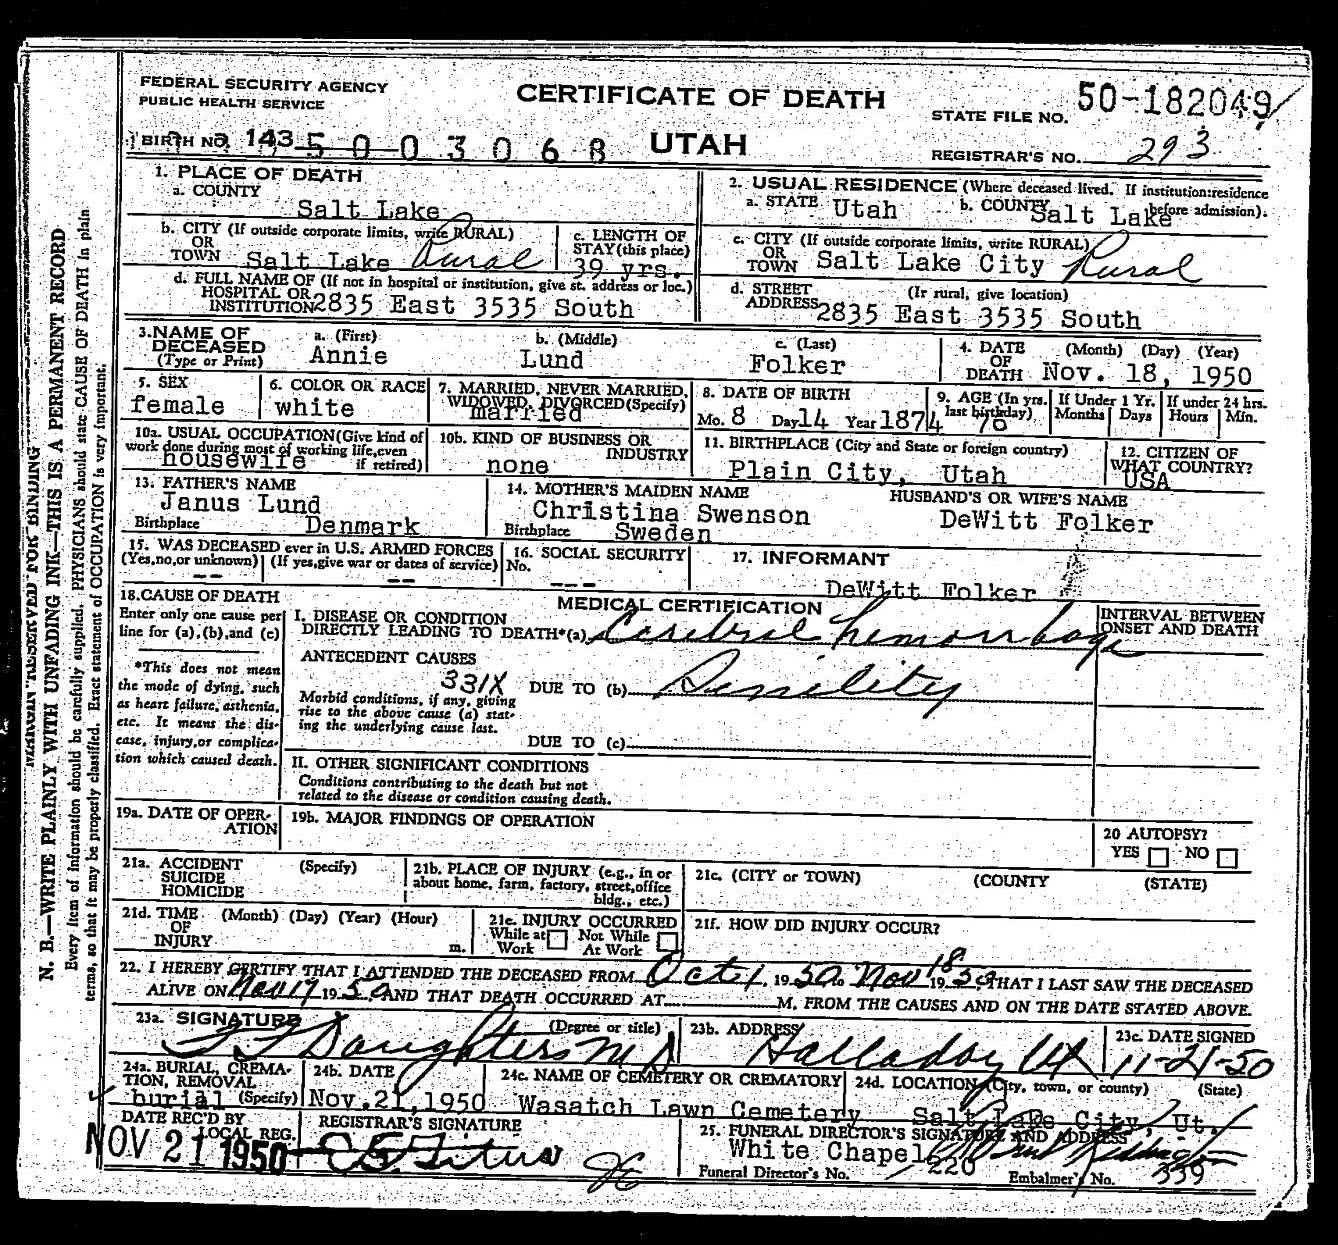 FEDERAL SECURITY AGENCY
PUBLIC HEALTH SERVICE
CERTIFICATE OF DEATH
UTAH
STATE FILE NO. 50-182049
BIRTH NO. 143 5003068
REGISTRAR'S NO. 293
1. PLACE OF DEATH
a. COUNTY
Salt Lake
2. USUAL RESIDENCE (Where deceased lived. If institution: residence before admission).
a. STATE Utah b. COUNTY Salt Lake
b. CITY (If outside corporate limits, write RURAL)
OR
TOWN Salt Lake Rural
c. LENGTH OF STAY (this place)
39 yrs.
c. CITY (If outside corporate limits, write RURAL)
OR
TOWN Salt Lake City Rural
d. FULL NAME OF (If not in hospital or institution, give st. address or loc.)
HOSPITAL OR
INSTITUTION 2835 East 3535 South
d. STREET (If rural, give location)
ADDRESS 2835 East 3535 South
3. NAME OF DECEASED
(Type or Print)
a. (First) b. (Middle) c. (Last)
Annie Lund Folker
4. DATE OF DEATH (Month) (Day) (Year)
Nov. 18, 1950
5. SEX
female
6. COLOR OR RACE
white
7. MARRIED, NEVER MARRIED, WIDOWED, DIVORCED (Specify)
married
8. DATE OF BIRTH
Mo. 8 Day 14 Year 1874
9. AGE (In yrs. last birthday)
76
If Under 1 Yr. Months Days
If under 24 hrs. Hours Min.
10a. USUAL OCCUPATION (Give kind of work done during most of working life, even if retired)
housewife
10b. KIND OF BUSINESS OR INDUSTRY
none
11. BIRTHPLACE (City and State or foreign country)
Plain City, Utah
12. CITIZEN OF WHAT COUNTRY?
USA
13. FATHER'S NAME
Janus Lund
Birthplace Denmark
14. MOTHER'S MAIDEN NAME
Christina Swenson
Birthplace Sweden
HUSBAND'S OR WIFE'S NAME
DeWitt Folker
15. WAS DECEASED ever in U.S. ARMED FORCES
(Yes, no, or unknown) (If yes, give war or dates of service)
-- --
16. SOCIAL SECURITY
No.
---
17. INFORMANT
DeWitt Folker
18. CAUSE OF DEATH
Enter only one cause per line for (a), (b), and (c)
*This does not mean the mode of dying, such as heart failure, asthenia, etc. It means the disease, injury, or complication which caused death.
MEDICAL CERTIFICATION
INTERVAL BETWEEN ONSET AND DEATH
I. DISEASE OR CONDITION
DIRECTLY LEADING TO DEATH*(a) Cerebral hemorrhage
ANTECEDENT CAUSES
331X
DUE TO (b) Senility
Morbid conditions, if any, giving rise to the above cause (a) stating the underlying cause last.
DUE TO (c)
II. OTHER SIGNIFICANT CONDITIONS
Conditions contributing to the death but not
related to the disease or condition causing death.
19a. DATE OF OPERATION
19b. MAJOR FINDINGS OF OPERATION
20 AUTOPSY?
YES NO
21a. ACCIDENT (Specify)
SUICIDE
HOMICIDE
21b. PLACE OF INJURY (e.g., in or about home, farm, factory, street, office bldg., etc.)
21c. (CITY or TOWN) (COUNTY (STATE)
21d. TIME OF INJURY (Month) (Day) (Year) (Hour)
m.
21e. INJURY OCCURRED
While at Work Not While At Work
21f. HOW DID INJURY OCCUR?
22. I HEREBY CERTIFY THAT I ATTENDED THE DECEASED FROM Oct 1, 1950 to Nov 18 1950, THAT I LAST SAW THE DECEASED
ALIVE ON Nov 17 1950 AND THAT DEATH OCCURRED AT M. FROM THE CAUSES AND ON THE DATE STATED ABOVE.
23a. SIGNATURE (Degree or title)
Daughters M D
23b. ADDRESS
Halladay Ut
23c. DATE SIGNED
11-21-50
24a. BURIAL, CREMATION, REMOVAL
burial (Specify)
24b. DATE
Nov. 21, 1950
24c. NAME OF CEMETERY OR CREMATORY
Wasatch Lawn Cemetery
24d. LOCATION (City, town, or county) (State)
Salt Lake City, Ut.
DATE REC'D BY LOCAL REG.
NOV 21 1950
REGISTRAR'S SIGNATURE
25. FUNERAL DIRECTOR'S SIGNATURE AND ADDRESS
White Chapel
Funeral Director's No. 220
Embalmer's No. 339
N. B.—WRITE PLAINLY WITH UNFADING INK—THIS IS A PERMANENT RECORD
Every item of information should be carefully supplied. PHYSICIANS should state CAUSE OF DEATH in plain
terms, so that it may be properly classified. Exact statement of OCCUPATION is very important.